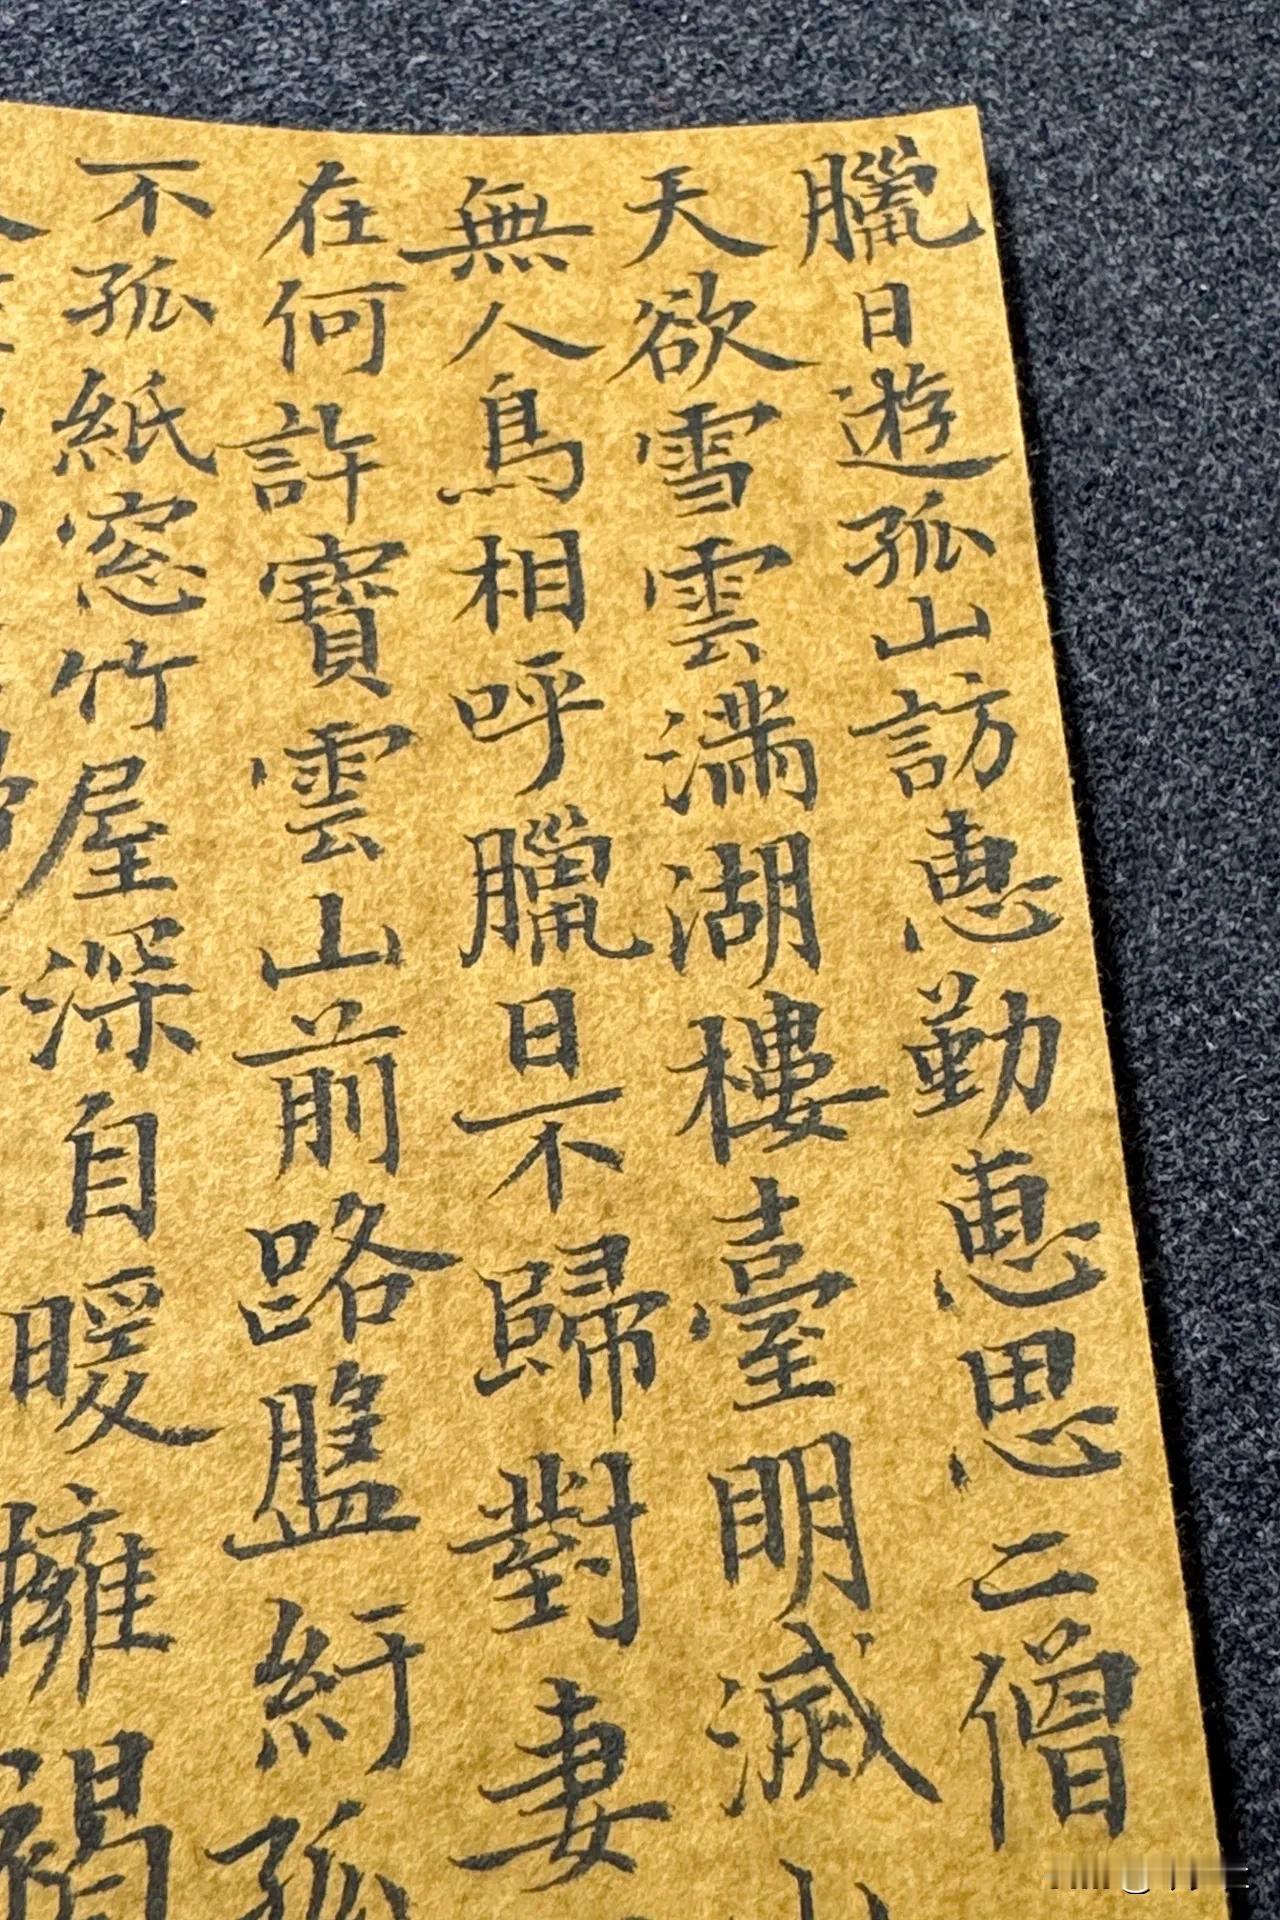 臘日遊孤山訪惠勤惠思二僧
天欲雪雲滿湖樓臺明滅山
無人鳥相呼臘日不歸對妻
在何許寶雲山前路盤紆孤
不孤紙窓竹屋深自暖擁褐